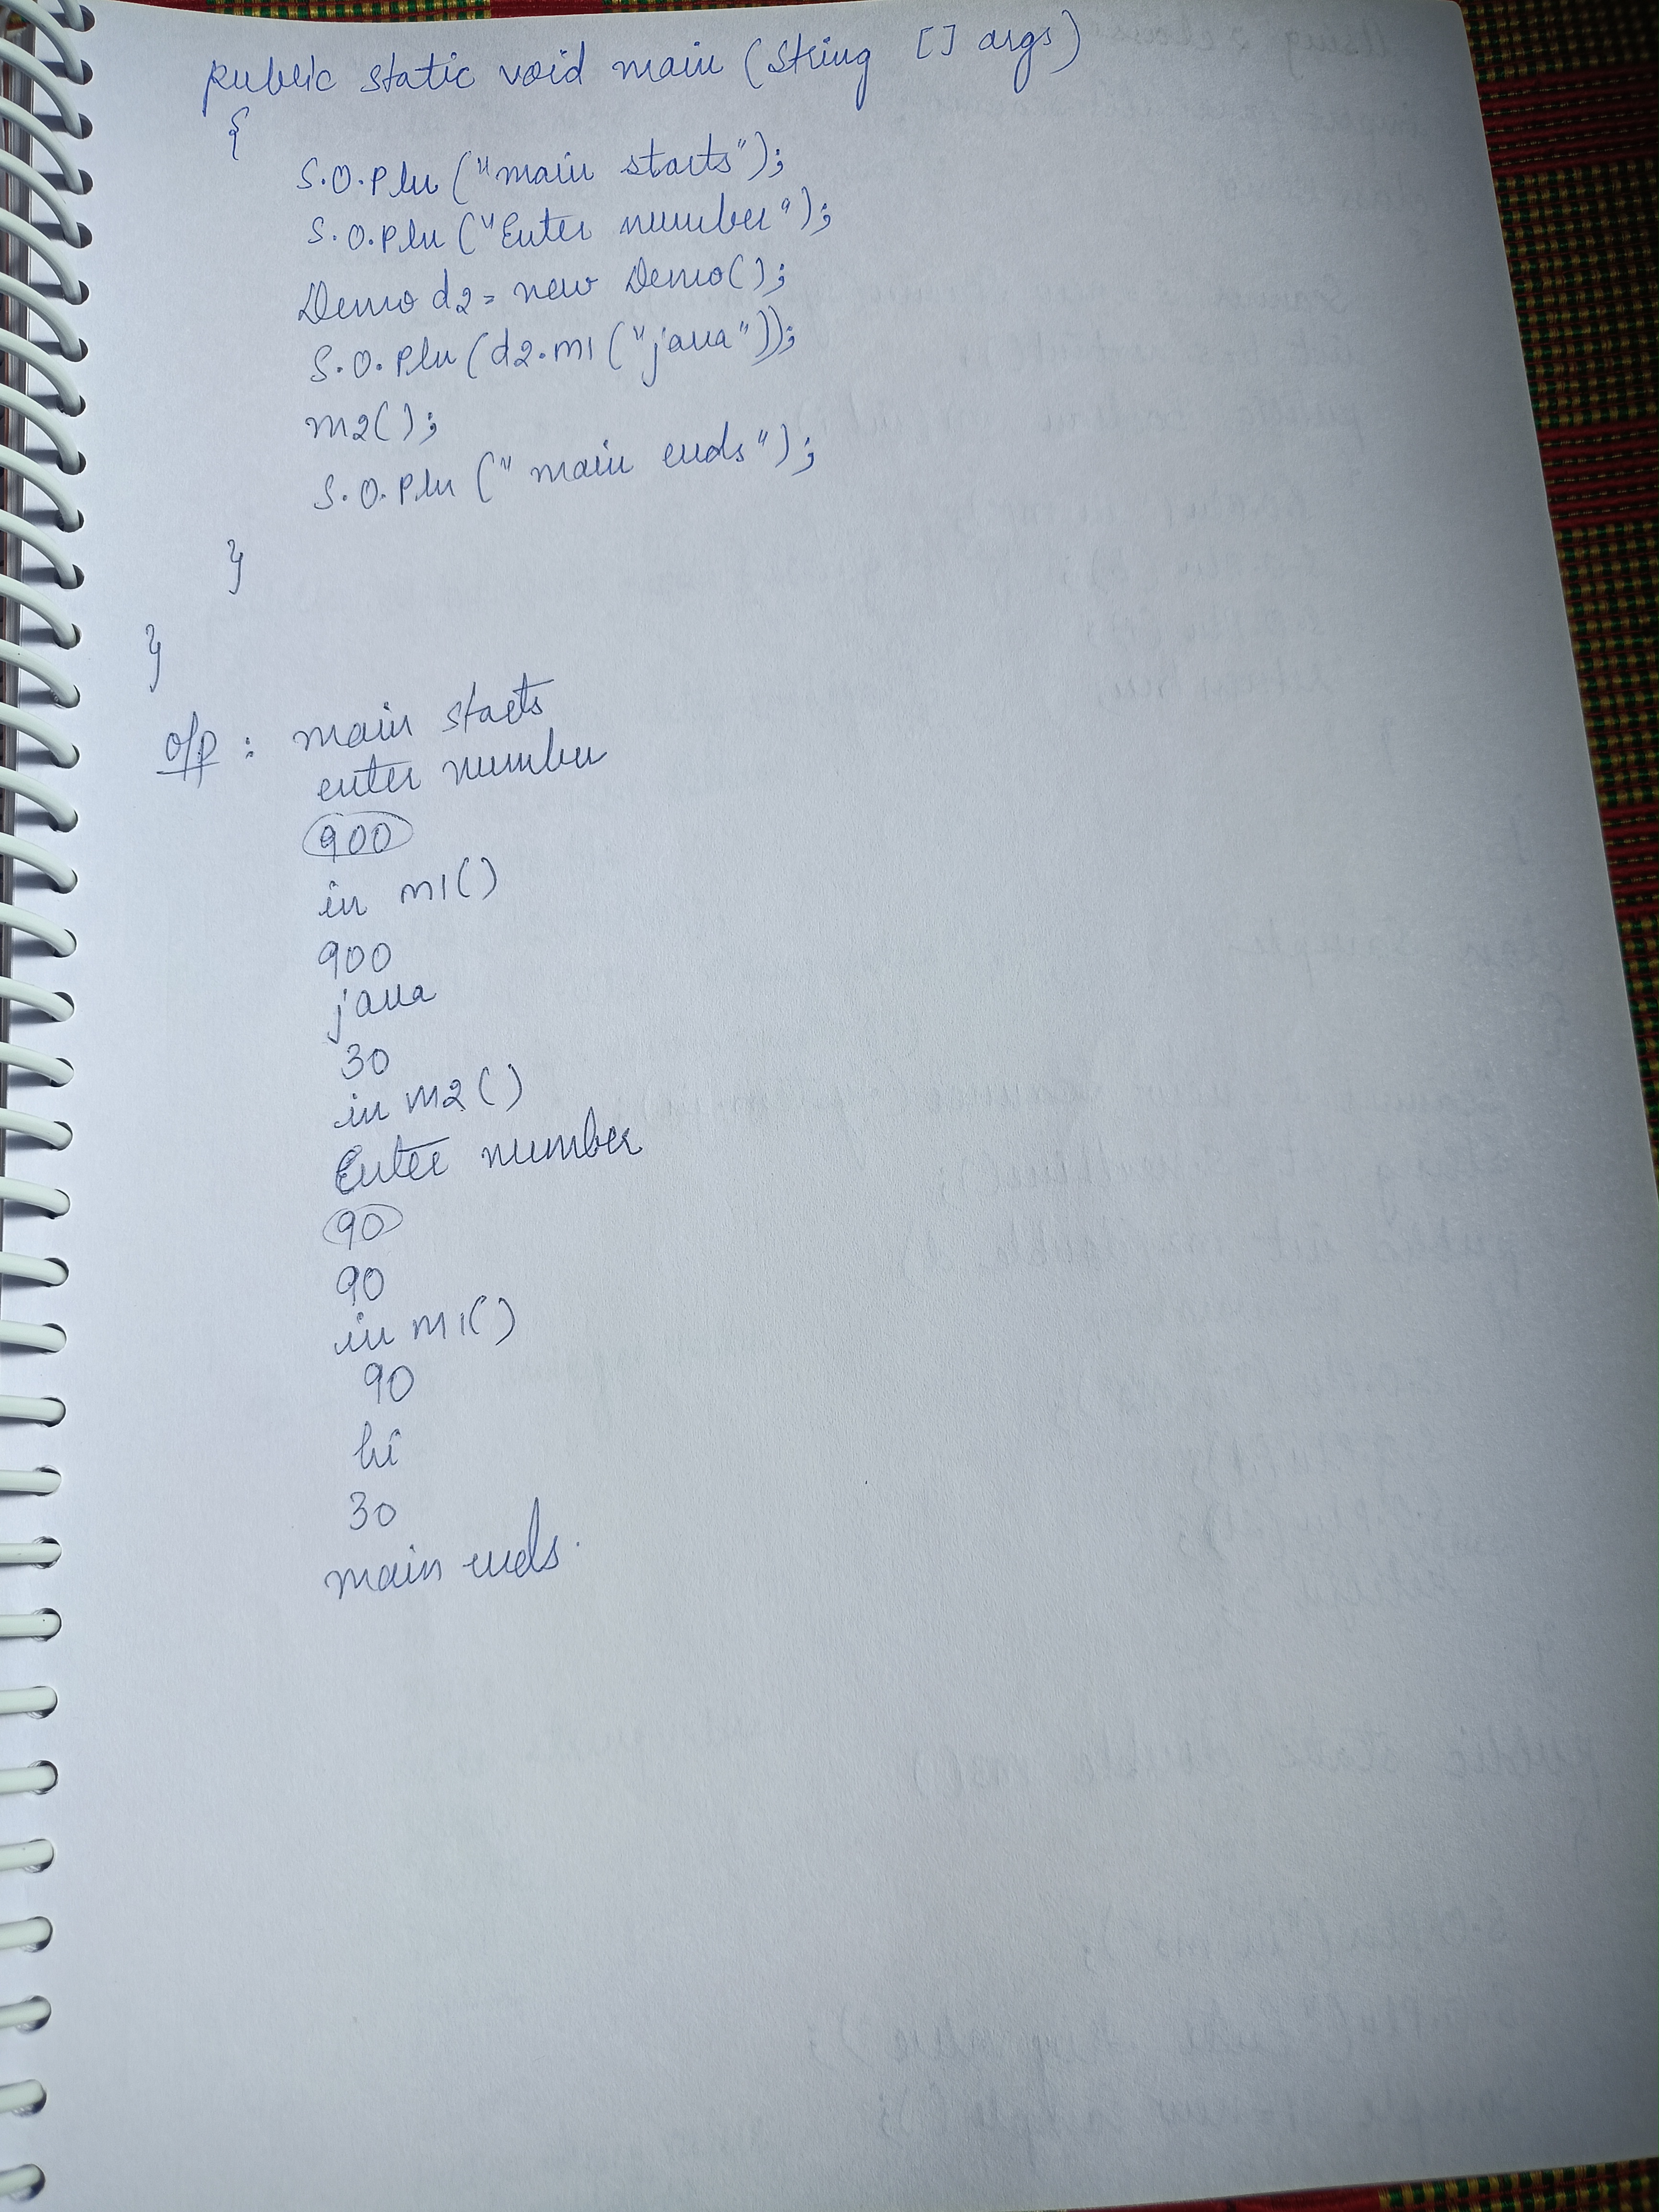 public static void main (String [] args)
{
S.O.Pln ("main starts");
S.O.Pln ("Enter number");
Demo d2 = new Demo();
S.O.Pln (d2.m1 ("java"));
m2();
S.O.Pln (" main ends");
}
}
o/p : main starts
enter number
900
in m1()
900
java
30
in m2()
Enter number
90
90
in m1()
90
hi
30
main ends.